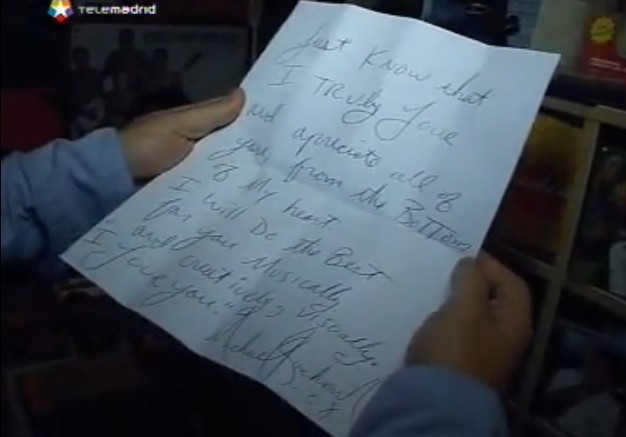 Telemadrid
Just Know that
I TRuly love
and apreciate all of
you, from the Bottom
of My heart.
I will Do the Best
for you Musically
and creatively, Visually.
I love you.
Michael Jackson